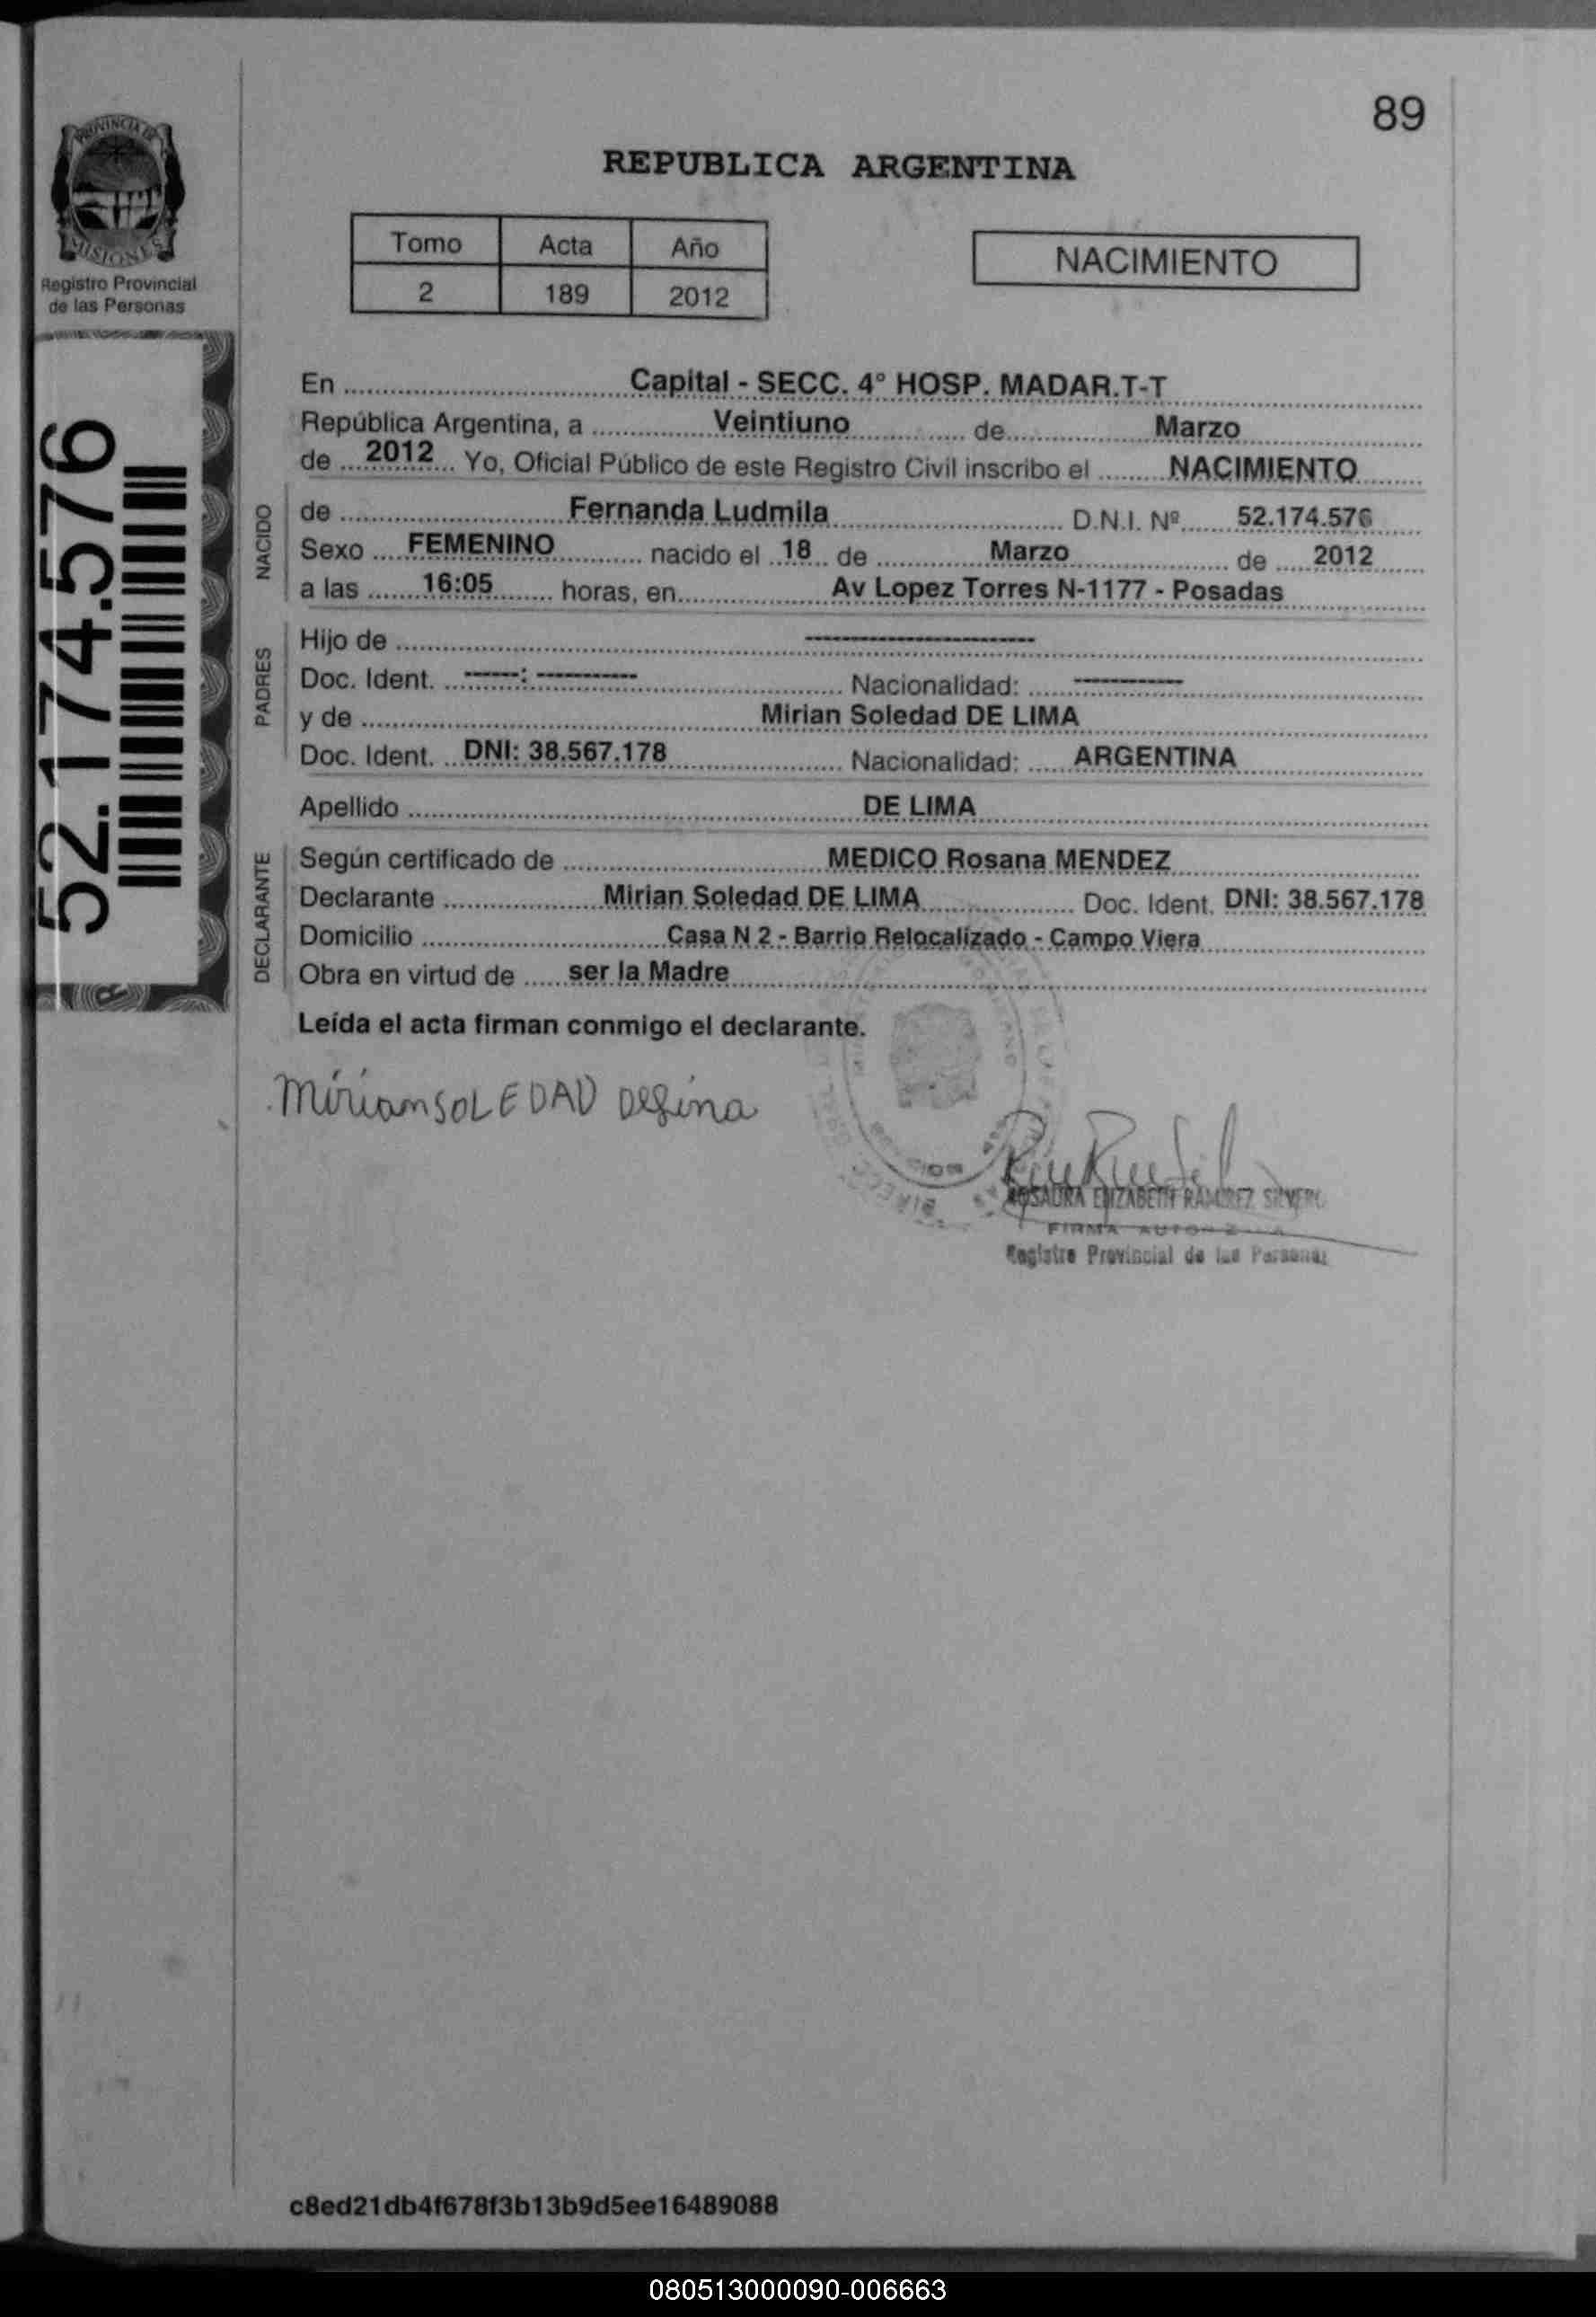 89
PROVINCIA DE
MISIONES
Registro Provincial
de las Personas
REPUBLICA ARGENTINA
Tomo Acta Año
2 189 2012
NACIMIENTO
52.174.576
En Capital - SECC. 4° HOSP. MADAR.T-T
República Argentina, a Veintiuno de Marzo
de 2012 Yo, Oficial Público de este Registro Civil inscribo el NACIMIENTO
NACIDO
de Fernanda Ludmila D.N.I. Nº 52.174.576
Sexo FEMENINO nacido el 18 de Marzo de 2012
a las 16:05 horas, en Av Lopez Torres N-1177 - Posadas
PADRES
Hijo de --------------------
Doc. Ident. -----: ---------- Nacionalidad: ----------
y de Mirian Soledad DE LIMA
Doc. Ident. DNI: 38.567.178 Nacionalidad: ARGENTINA
Apellido DE LIMA
DECLARANTE
Según certificado de MEDICO Rosana MENDEZ
Declarante Mirian Soledad DE LIMA Doc. Ident. DNI: 38.567.178
Domicilio Casa N 2 - Barrio Relocalizado - Campo Viera
Obra en virtud de ser la Madre
Leída el acta firman conmigo el declarante.
MiriamSOLEDAD
ROSAURA ELIZABETH RAMIREZ
FIRMA
Registro Provincial de las Personas
c8ed21db4f678f3b13b9d5ee16489088
080513000090-006663